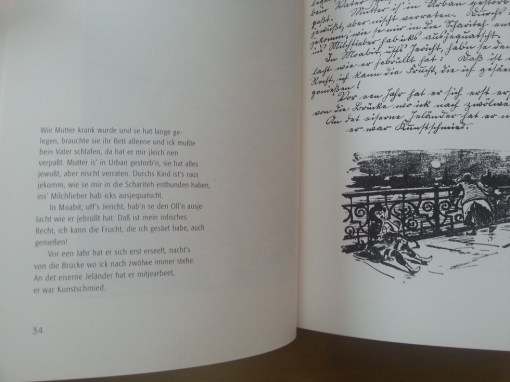 Wie Mutter krank wurde und se hat lange ge-
legen, brauchte sie ihr Bett alleene und ick mußte
bein Vater schlafen, da hat er mir jleich nen
verpaßt. Mutter is' in Urban gestorb'n, sie hat alles
jewußt, aber nischt verraten. Durchs Kind ist's raus
jekomm, wie se mir in die Scharitéh entbunden haben,
ins' Milchfieber hab icks ausjequatscht.
In Moabit, uff's Jericht, hab'n se den Oll'n ausje-
lacht wie er jebrüllt hat: Daß ist mein irdisches
Recht, ich kann die Frucht, die ich gesäet habe, auch
genießen!
Vor een Jahr hat er sich erst erseeft, nacht's
von die Brücke wo ick nach zwölwe immer stehe.
An det eiserne Jeländer hat er mitjearbeet,
er war Kunstschmied.
34
Mutter is' in Urban gestorb
aber nischt verraten. Durchs
wie se mir in die Scharitéh
Milchfieber hab icks ausjequatscht.
In Moabit, uff's Jericht, hab'n se den
lacht wie er jebrüllt hat: Daß ist
Recht, ich kann die Frucht, die ich gesäet
genießen!
Vor een Jahr hat er sich erst
von die Brücke wo ick nach zwölwe
An det eiserne Jeländer hat er
er war Kunstschmied.